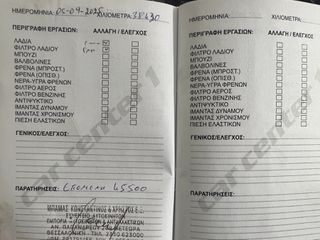 ΗΜΕΡΟΜΗΝΙΑ: 05-04-2025 ΧΙΛΙΟΜΕΤΡΑ: 38430
ΠΕΡΙΓΡΑΦΗ ΕΡΓΑΣΙΩΝ: ΑΛΛΑΓΗ / ΕΛΕΓΧΟΣ
ΛΑΔΙΑ
ΦΙΛΤΡΟ ΛΑΔΙΟΥ
ΜΠΟΥΖΙ
ΒΑΛΒΟΛΙΝΕΣ
ΦΡΕΝΑ (ΜΠΡΟΣΤ.)
ΦΡΕΝΑ (ΟΠΙΣΘ.)
ΝΕΡΑ-ΥΓΡΑ ΦΡΕΝΩΝ
ΦΙΛΤΡΟ ΑΕΡΟΣ
ΦΙΛΤΡΟ ΒΕΝΖΙΝΗΣ
ΑΝΤΙΨΥΚΤΙΚΟ
ΙΜΑΝΤΑΣ ΔΥΝΑΜΟΥ
ΙΜΑΝΤΑΣ ΧΡΟΝΙΣΜΟΥ
ΠΙΕΣΗ ΕΛΑΣΤΙΚΩΝ
ΓΕΝΙΚΟΣ/ΕΛΕΓΧΟΣ:
ΠΑΡΑΤΗΡΗΣΕΙΣ: 45500
ΜΠΑΜΑΣ ΚΩΝΣΤΑΝΤΙΝΟΣ & ΧΡΗΣΤΟΣ Ο.Ε.
ΣΥΝΕΡΓΕΙΟ ΑΥΤΟΚΙΝΗΤΩΝ
ΕΜΠΟΡΙΑ & ΑΝΤΑΛΛΑΚΤΙΚΩΝ
ΑΝ. ΠΑΠΑΝΔΡΕΟΥ ΜΕΤΕΩΡΑ
ΘΕΣΣΑΛΟΝΙΚΗ - ΤΗΛ. 2310 623000
car center 1
ΗΜΕΡΟΜΗΝΙΑ: ΧΙΛΙΟΜΕΤΡΑ:
ΠΕΡΙΓΡΑΦΗ ΕΡΓΑΣΙΩΝ: ΑΛΛΑΓΗ / ΕΛΕΓΧΟΣ
ΛΑΔΙΑ
ΦΙΛΤΡΟ ΛΑΔΙΟΥ
ΜΠΟΥΖΙ
ΒΑΛΒΟΛΙΝΕΣ
ΦΡΕΝΑ (ΜΠΡΟΣΤ.)
ΦΡΕΝΑ (ΟΠΙΣΘ.)
ΝΕΡΑ-ΥΓΡΑ ΦΡΕΝΩΝ
ΦΙΛΤΡΟ ΑΕΡΟΣ
ΦΙΛΤΡΟ ΒΕΝΖΙΝΗΣ
ΑΝΤΙΨΥΚΤΙΚΟ
ΙΜΑΝΤΑΣ ΔΥΝΑΜΟΥ
ΙΜΑΝΤΑΣ ΧΡΟΝΙΣΜΟΥ
ΠΙΕΣΗ ΕΛΑΣΤΙΚΩΝ
ΓΕΝΙΚΟΣ/ΕΛΕΓΧΟΣ:
ΠΑΡΑΤΗΡΗΣΕΙΣ:
car center 1